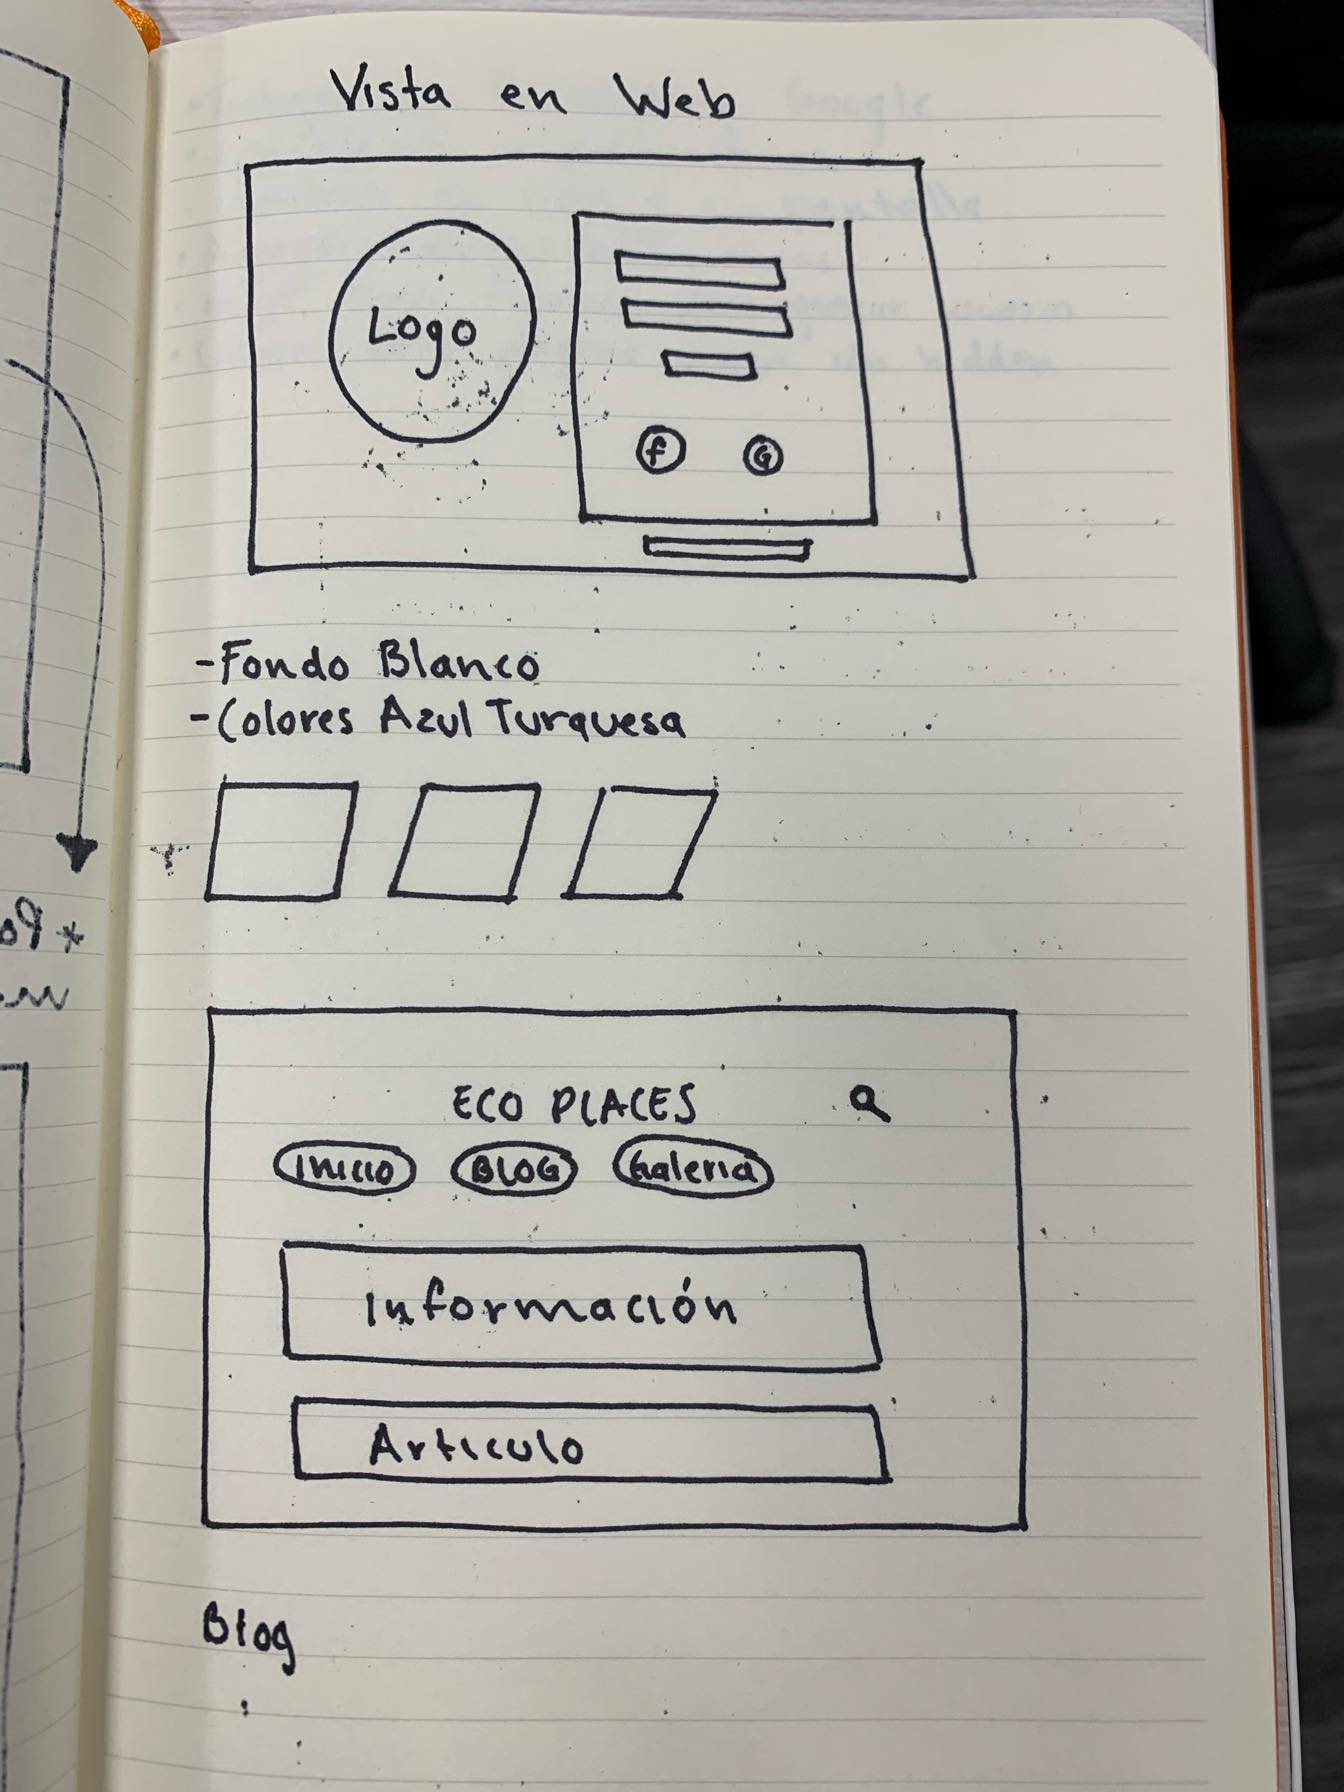 Vista en Web
Logo
f G
-Fondo Blanco
-Colores Azul Turquesa
ECO PLACES
Inicio BLOG Galeria
Información
Articulo
Blog